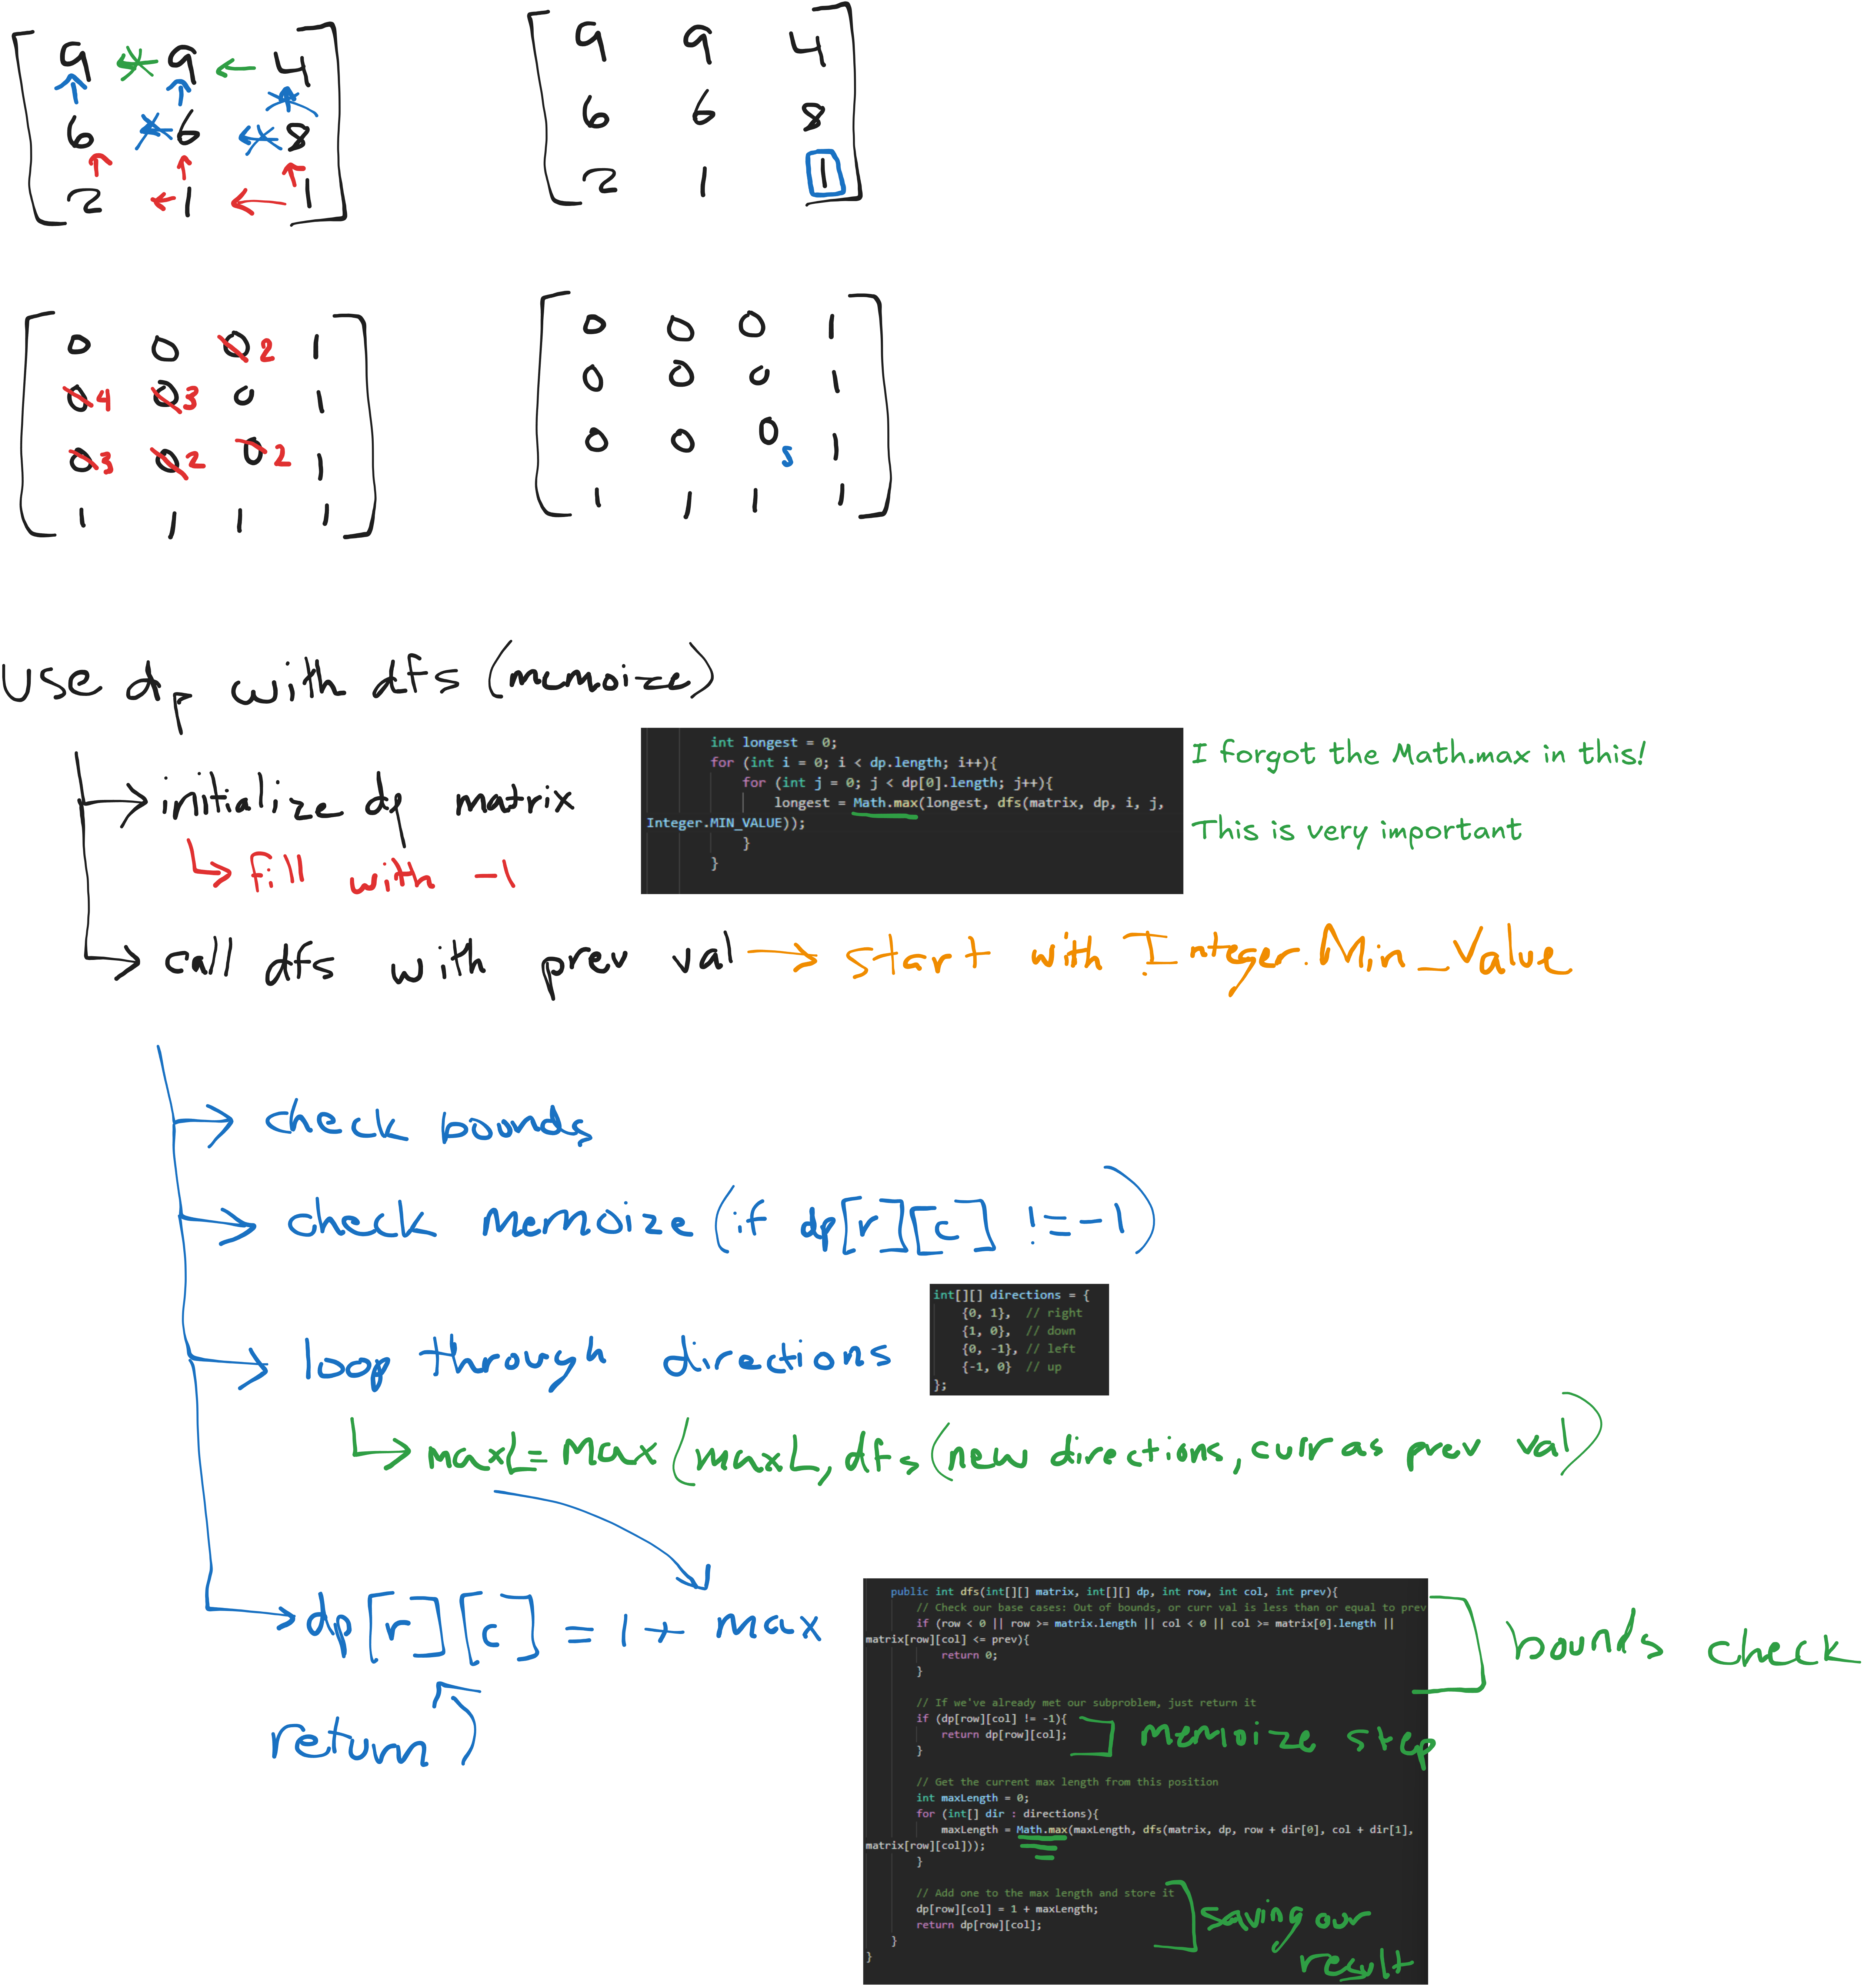 9 9 4
6 6 8
2 1 1
9 9 4
6 6 8
2 1 1
0 0 0 2 1
0 4 0 3 0 1
0 3 0 2 0 2 1
1 1 1 1
0 0 0 1
0 0 0 1
0 0 0 1
5
1 1 1 1
Use dp with dfs (memoize)
initialize dp matrix
fill with -1
int longest = 0;
for (int i = 0; i < dp.length; i++){
for (int j = 0; j < dp[0].length; j++){
longest = Math.max(longest, dfs(matrix, dp, i, j,
Integer.MIN_VALUE));
}
}
I forgot the Math.max in this!
This is very important
call dfs with prev val → start with Integer.Min_Value
check bounds
check memoize (if dp[r][c] !=-1)
loop through directions
int[][] directions = {
{0, 1}, // right
{1, 0}, // down
{0, -1}, // left
{-1, 0} // up
};
maxL = Max (maxL, dfs (new directions, curr as prev val)
dp[r][c] = 1 + max
return
public int dfs(int[][] matrix, int[][] dp, int row, int col, int prev){
// Check our base cases: Out of bounds, or curr val is less than or equal to prev
if (row < 0 || row >= matrix.length || col < 0 || col >= matrix[0].length ||
matrix[row][col] <= prev){
return 0;
}
bounds check
// If we've already met our subproblem, just return it
if (dp[row][col] != -1){
return dp[row][col];
}
memoize step
// Get the current max length from this position
int maxLength = 0;
for (int[] dir : directions){
maxLength = Math.max(maxLength, dfs(matrix, dp, row + dir[0], col + dir[1],
matrix[row][col]));
}
// Add one to the max length and store it
dp[row][col] = 1 + maxLength;
return dp[row][col];
}
}
saving our
result